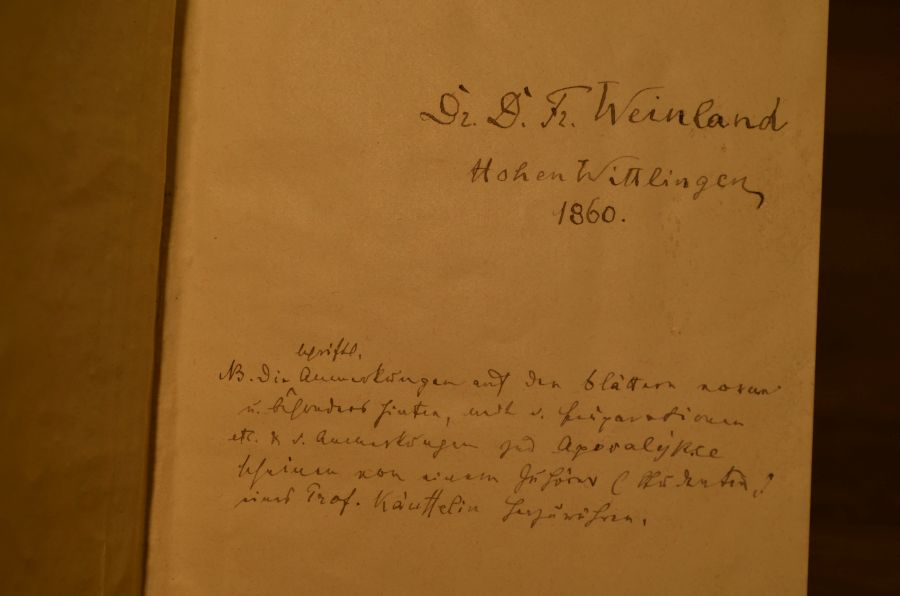 Dr. D. Fr. Weinland
Hohen Wittlingen
1860.
schriftl.
NB. Die Anmerkungen auf den Blättern vorne
u. besonders hinten, mit
etc. & d. Anmerkungen zur Apocalypse
scheinen von einem Zuhörer (Studenten)
eines Prof. herzurühren.